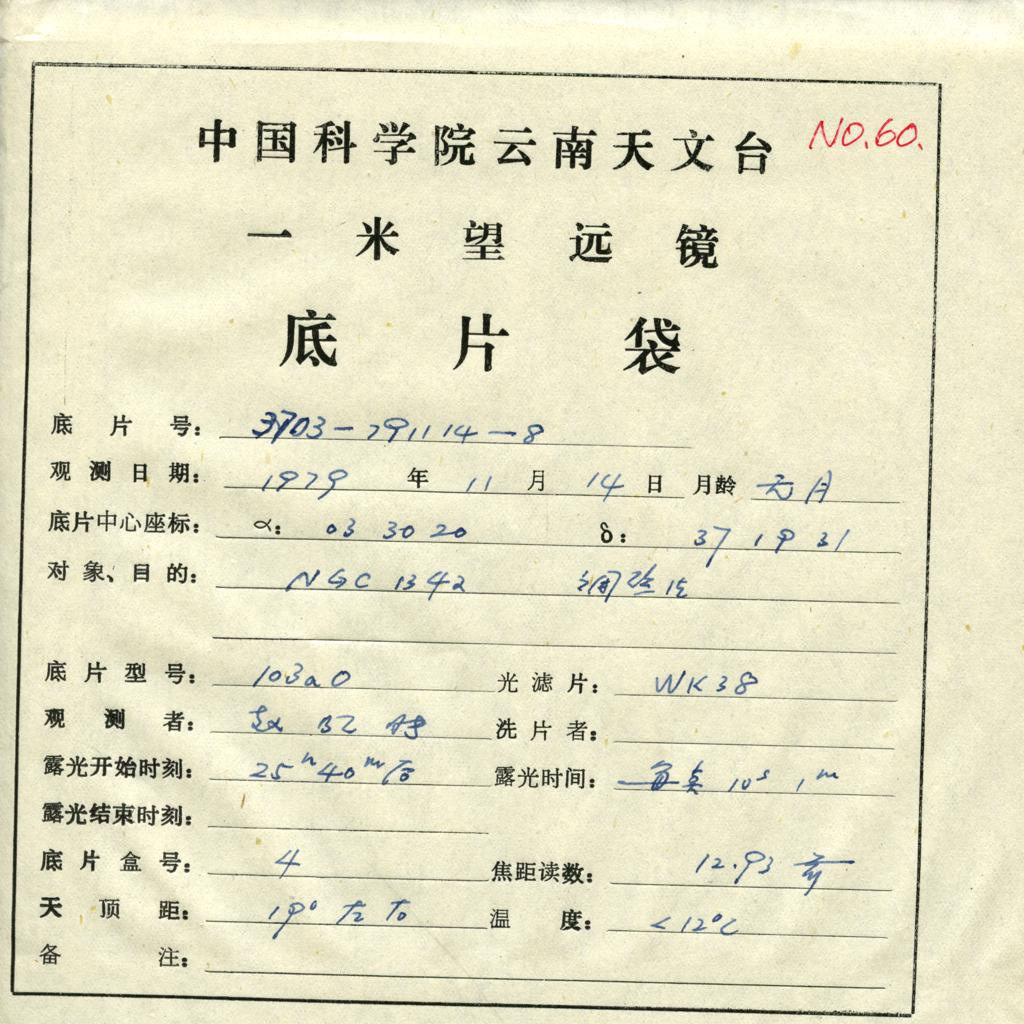 中国科学院云南天文台 NO.60.
一米望远镜
底片袋
底片号: 3703-791114-8
观测日期: 1979 年 11 月 14 日 月龄 无月
底片中心座标: α: 03 30 20 δ: 37 19 31
对象、目的: NGC 1342
底片型号: 103aO 光滤片: WK38
观测者: 洗片者:
露光开始时刻: 25h 40m 后 露光时间: 10s 1m
露光结束时刻:
底片盒号: 4 焦距读数: 12.93
天顶距: 19° 左右 温度: <12°C
备注: